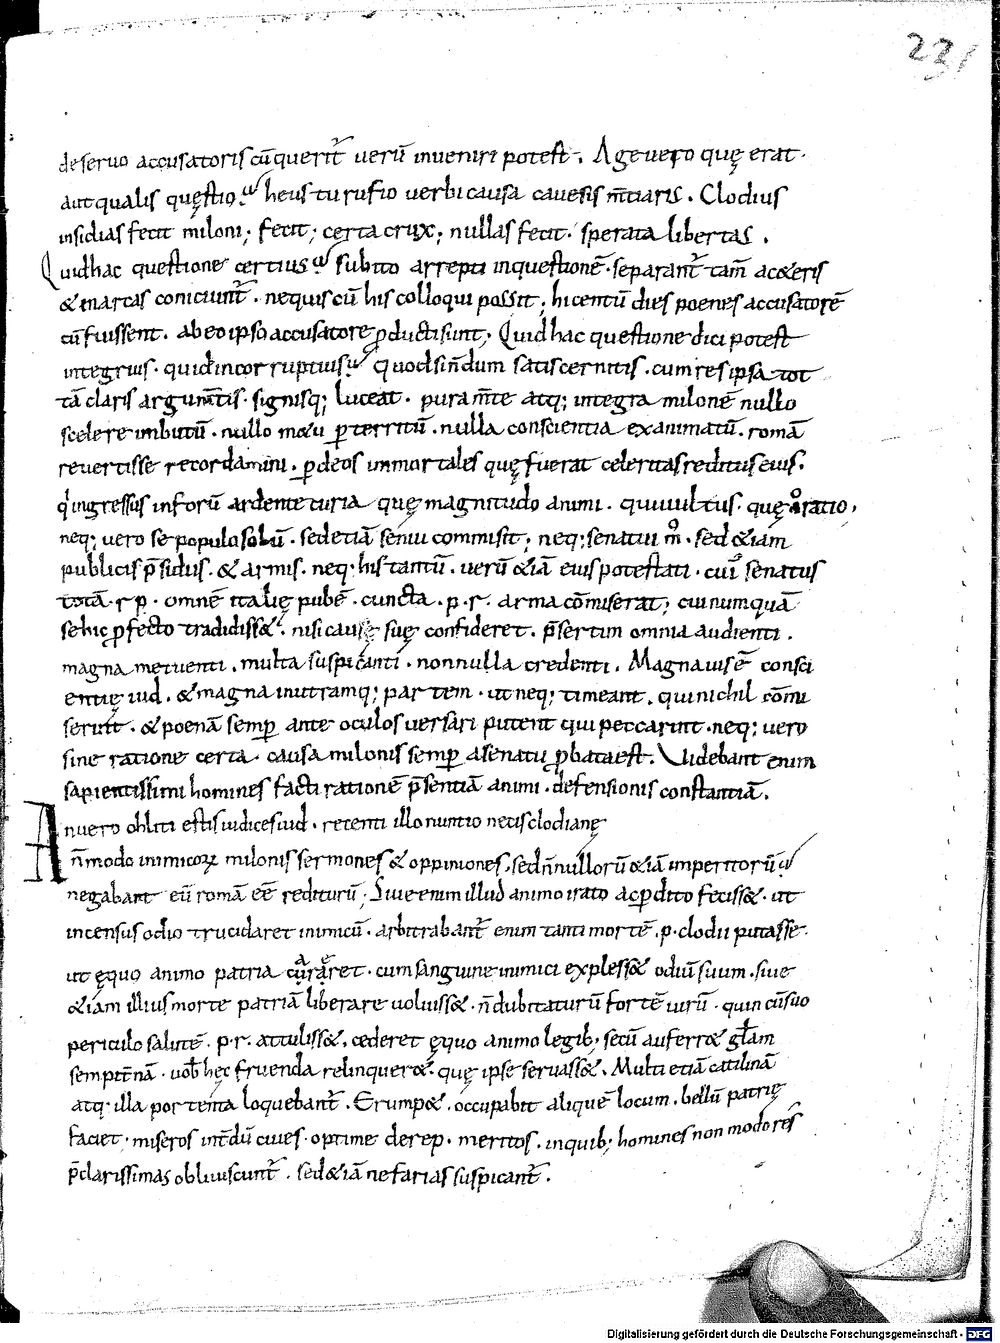 231
de servo accusatoris cū querit̄ verū inveniri potest. Age vero quę erat.
aut qualis quęstio. heus tu rufio verbi causa cavesis m̄tiaris. Clodius
insidias fecit miloni; fecit; certa crux; nullas fecit. sperata libertas.
Quid hac questione certius subito arrepti in questionē. separant̄ tam̄ a c&eris
& in arcas coniciunt̄. nequis cū his colloqui possit; hi centū dies poenes accusatorē
cū fuissent. ab eo ipso accusatore ꝓducti sunt; Quid hac questione dici potest
integrius. quid incorruptius quod sin̄dum satis cernitis. cum res ipsa tot
tā claris argum̄tis. signisq; luceat. pura m̄te atq; integra milonē nullo
scelere imbutū. nullo m&u ꝑterritū. nulla conscientia exanimatū. romā
revertisse recordamini. ꝑ deos inmortales quę fuerat celeritas reditus eius.
q' ingressus in forū ardente curia quę magnitudo animi. qui vultus. quę oratio,
neq; vero se populo solū. sed etiā seniui commisit; neq; senatui m̊. sed &iam
publicis p̄sidiis. & armis. neq; his tantū. verū &iā eius potestati. cui senatus
totā. r p. omnē italię pubē. cuncta. p. r. arma cōmiserat; cui numquā
se hic ꝓfecto tradidiss&. nisi causę suę confideret. p̄sertim omnia audienti.
magna metuenti. multa suspicanti. nonnulla credenti. Magna vis ē consci
entię iud. & magna in utramq; partem. ut neq; timeant. qui nichil cōmi
serūt. & poenā semꝑ ante oculos versari putent qui peccarint. neq; vero
sine ratione certa. causa milonis semꝑ a senatu ꝓbata est. Videbant enim
sapientissimi homines facti rationē p̄sentiā animi. defensionis constantiā.
An vero obliti estis iudices iud. recenti illo nuntio necis clodianę
n̄ modo inimicorꝝ milonis sermones & oppiniones. sed n̄nullorū &iā imperitorū
negabant eū romā eē rediturū; Sive enim illud animo irato ac ꝑdito feciss&. ut
incensus odio trucidaret inimicū. arbitrabant̄ enim tanti mortē. p. clodii putasse.
ut ęquo animo patria caŕeret. cum sanguine inimici expless& odiū suum. sive
&iam illius morte patriā liberare voluiss&. n̄ dubitaturū fortē virū. quin cū suo
periculo salutē. p. r. attuliss&. cederet ęquo animo legib; secū auferr& gl̄am
sempit̄nā. vob̄ hęc fruenda relinquer&. quę ipse servass&. Multi etiā catilinā
atq. illa portenta loquebant̄. Erump&. occupabit aliquē locum. bellū patrię
faciet. miseros int̄dū cives. optime de rep. meritos. in quib; homines non modo res
p̄clarissimas obliviscunt̄. sed &iā nefarias suspicant̄.
Digitalisierung gefördert durch die Deutsche Forschungsgemeinschaft - DFG